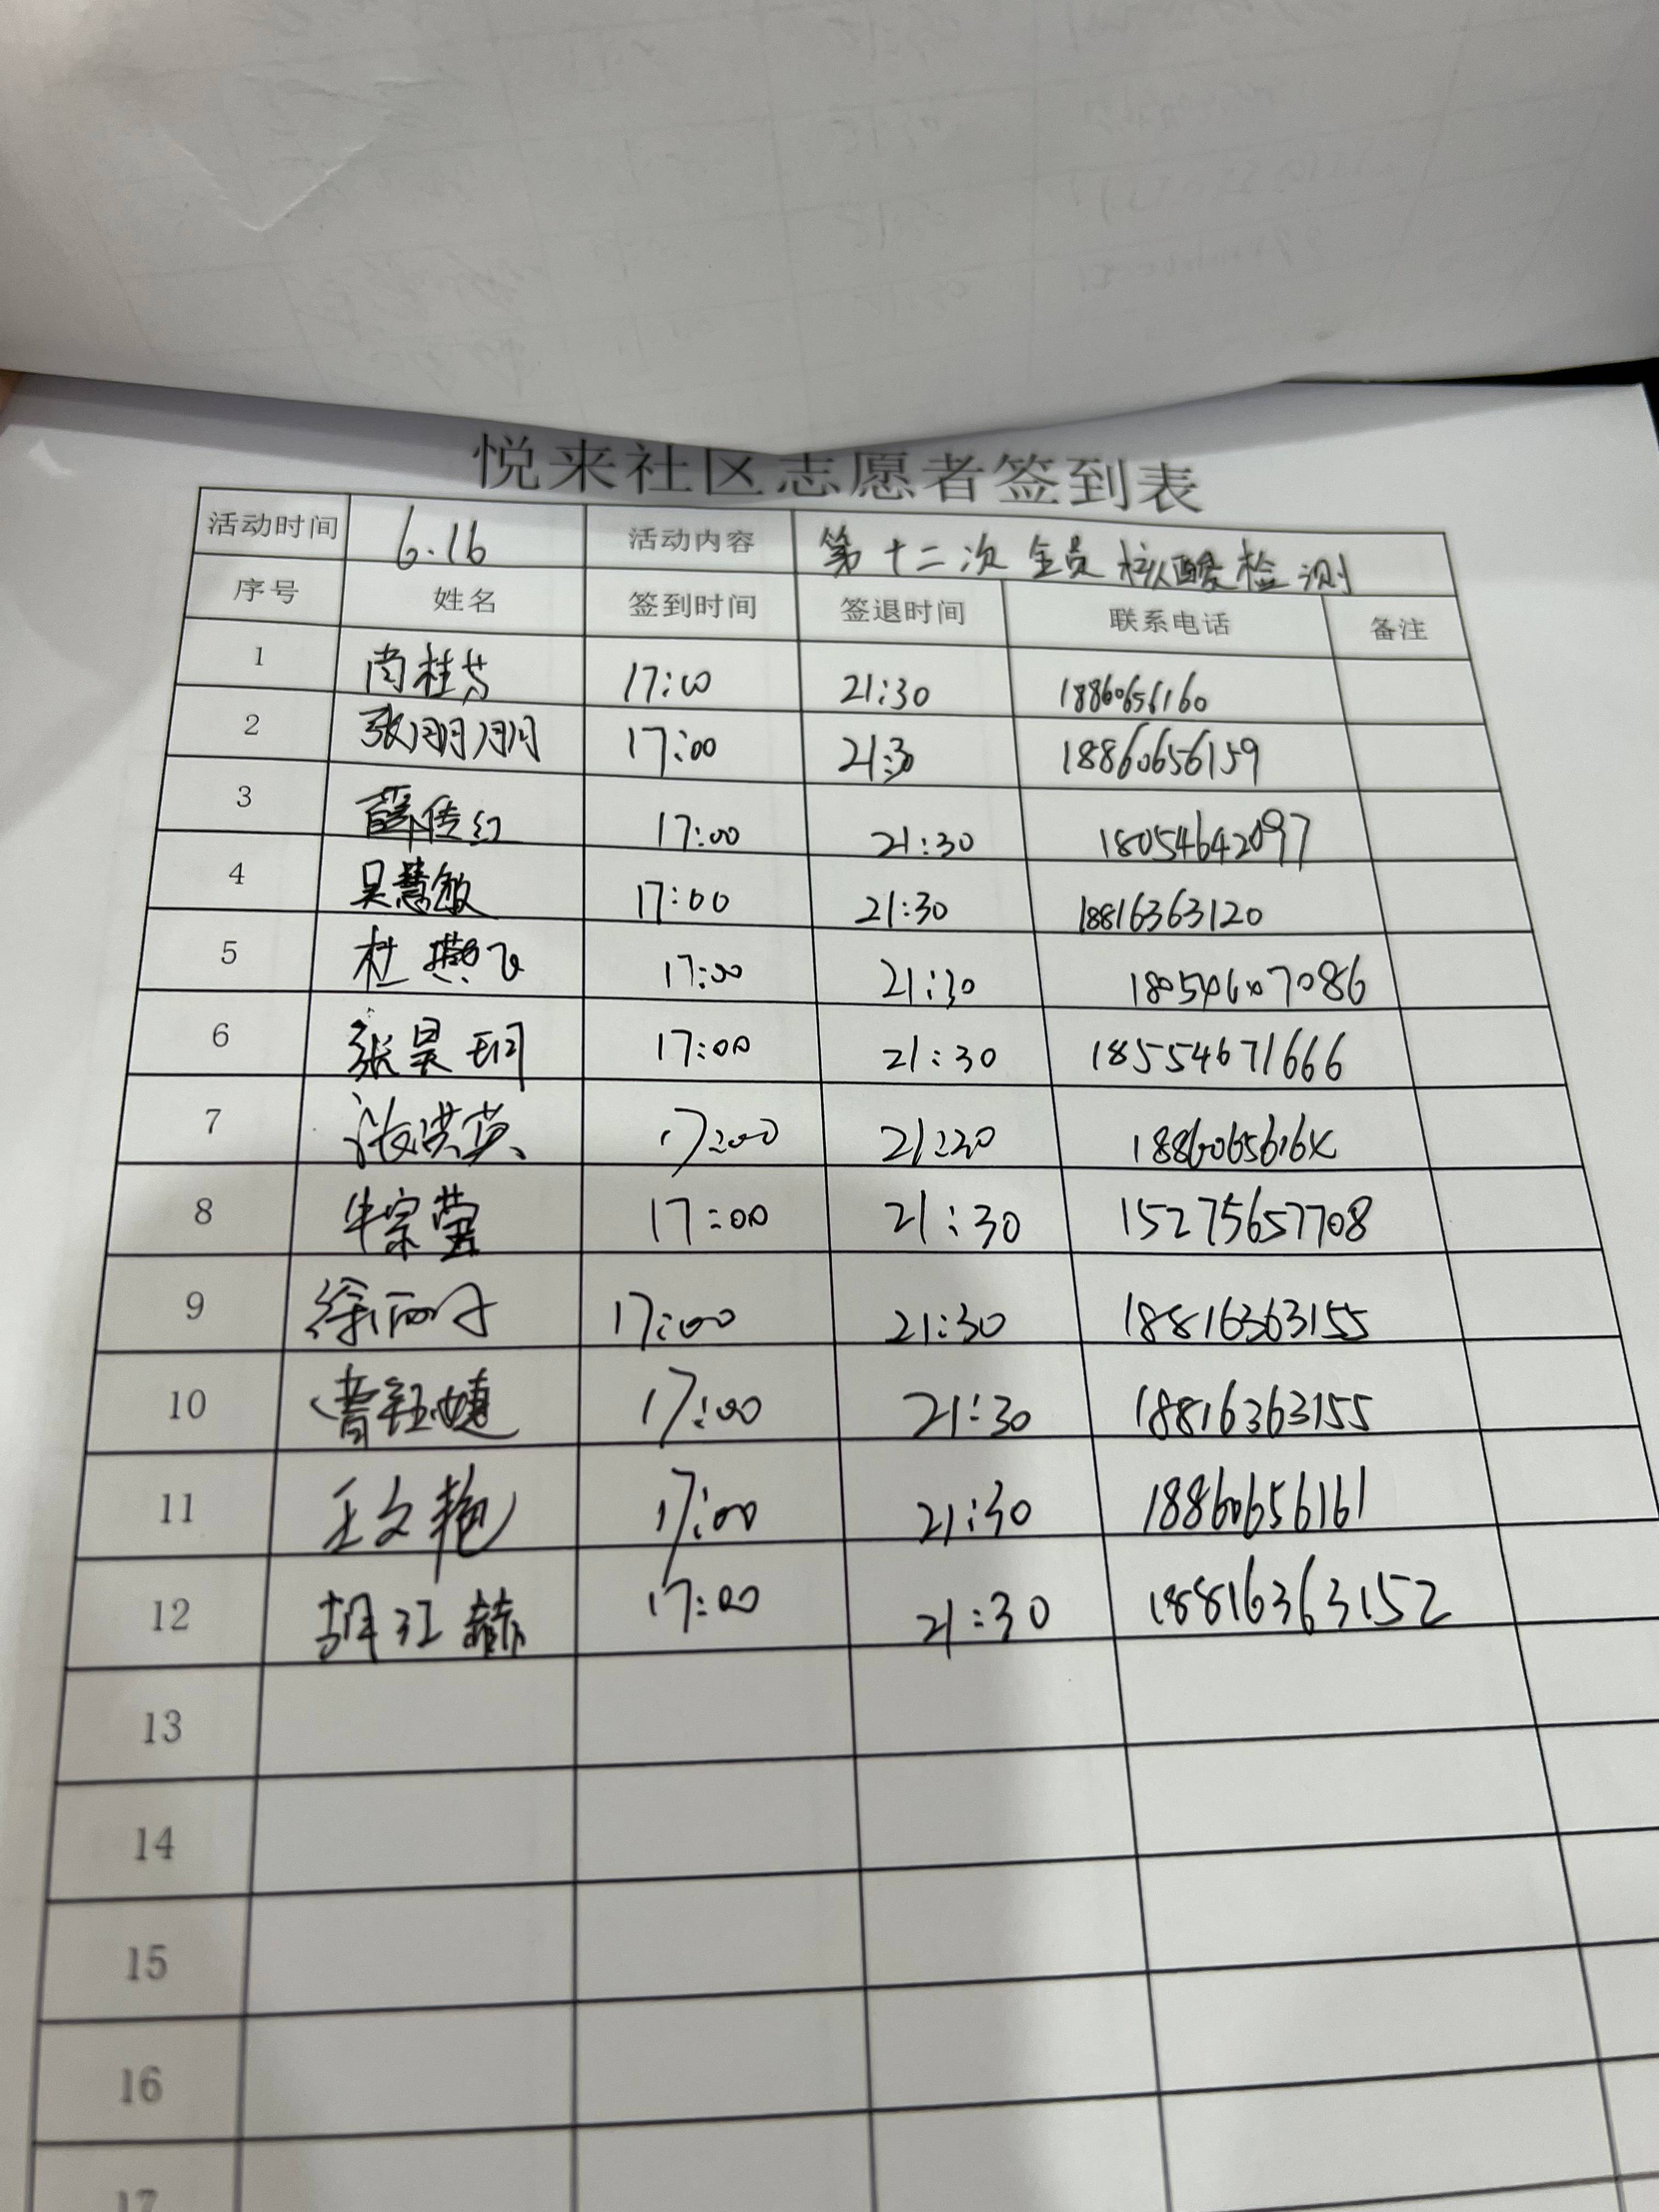 悦来社区志愿者签到表
活动时间 6.16 活动内容 第十二次全员核酸检测
序号 姓名 签到时间 签退时间 联系电话 备注
1 尚桂芳 17:00 21:30 18860656160
2 张明明 17:00 21:30 18860656159
3 薛传红 17:00 21:30 18054642097
4 吴慧敏 17:00 21:30 18816363120
5 杜燕飞 17:00 21:30
6 张昊玥 17:00 21:30 18554671666
7 张洪英 17:00 21:30
8 牛宗莹 17:00 21:30 15275657708
9 徐丽 17:00 21:30 18816363155
10 曹钰婕 17:00 21:30 18816363155
11 王文艳 17:00 21:30 18860656161
12 胡江赫 17:00 21:30 18816363152
13
14
15
16
17